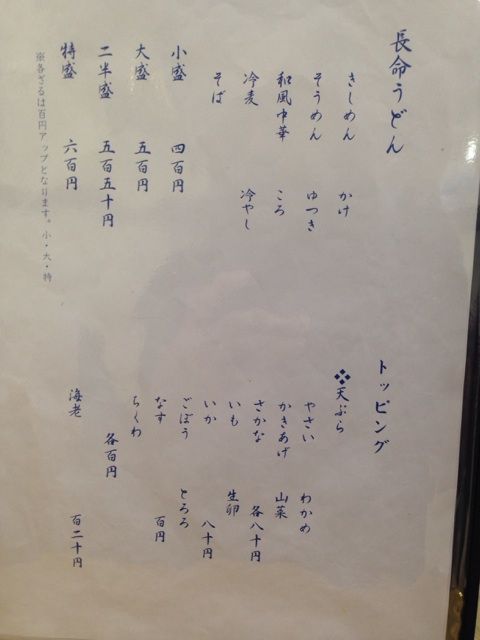 長命うどん
きしめん　かけ
そうめん　ゆつき
和風中華　ころ
冷麦　冷やし
そば
小盛　四百円
大盛　五百円
二半盛　五百五十円
特盛　六百円
※各ざるは百円アップとなります。小・大・特
トッピング
❖天ぷら
やさい　わかめ
かきあげ　山菜
さかな　各八十円
いも　生卵
いか　八十円
ごぼう　とろろ
なす　百円
ちくわ
各百円
海老　百二十円